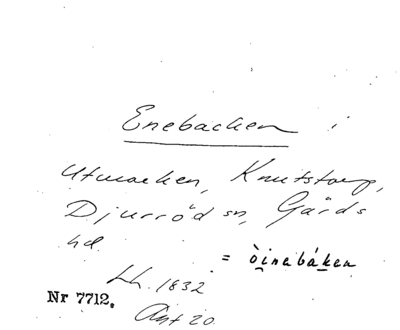 Enebacken i
Utmarken, Knutstorp,
Djurröd sn, Gärds
hd.
= òi̯nebák̲en
Lh. 1832
Nr 7712.
Akt 20